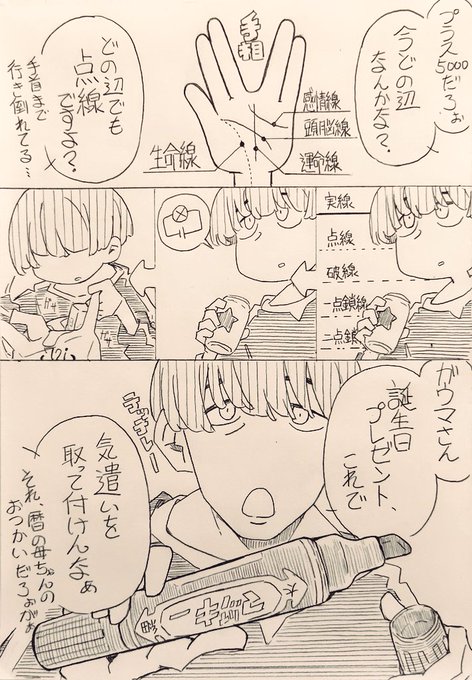 プラス
5000
だろぉ
今どの辺
なんかな?
手相
感情線
頭脳線
運命線
生命線
どの辺でも
点線
ですよ?
手首まで
行き倒れてる…
実線
点線
破線
一点鎖線
二点鎖
ガウマさん
誕生日
プレゼント、
これで
テッテレー
気遣いを
取って付けんなぁ
それ暦の母ちゃんの
おつかいだろぉがぁ
太
マッキー
細